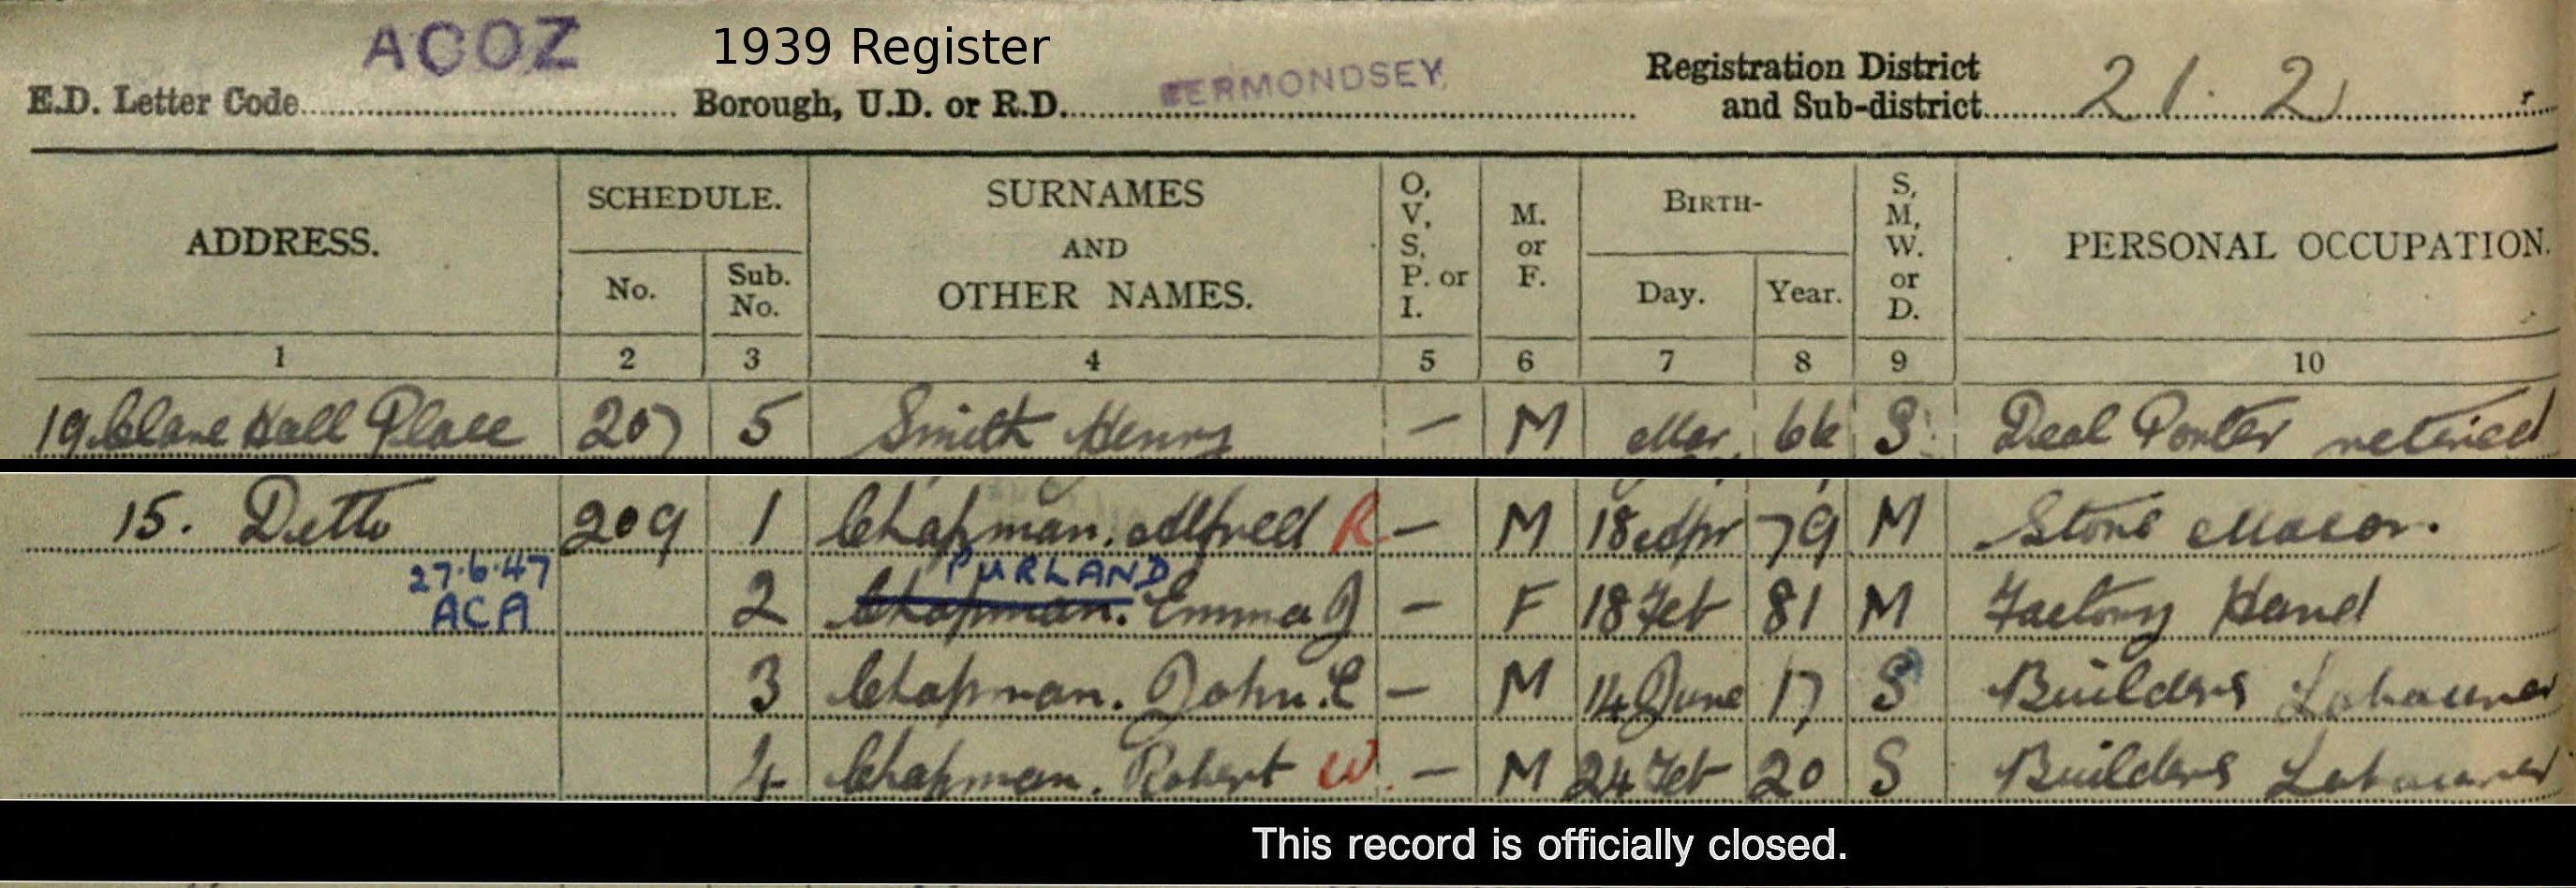 ACOZ 1939 Register
E.D. Letter Code Borough, U.D. or R.D. BERMONDSEY Registration District and Sub-district 21. 2
ADDRESS. SCHEDULE. No. Sub. No. SURNAMES AND OTHER NAMES. O, V, S, P. or I. M. or F. BIRTH- Day. Year. S, M, W. or D. PERSONAL OCCUPATION.
1 2 3 4 5 6 7 8 9 10
19 Hall Place 207 5 Smith Henry — M Mar 66 S Deal Porter retired
15. Ditto 209 1 Chapman. Alfred R — M 18 Apr 79 M Stone Mason.
27.6.47 PURLAND
ACA 2 Chapman. Emma J — F 18 Feb 81 M Factory Hand
3 Chapman. John. C — M 14 June 17 S Builders Labourer
4 Chapman. Robert W. — M 24 Feb 20 S Builders Labourer
This record is officially closed.